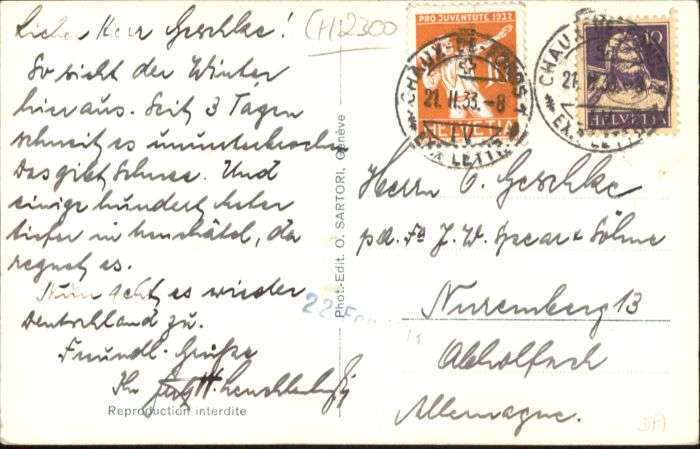 Lieber Herr Geschke!
(H)2300
So sieht der Winter
hier aus. Seit 3 Tagen
schneit es ununterbrochen
Das giebt Schnee. Und
einige hundert Meter
tiefer in Neuchâtel, da
regnet es.
Nun geht es wieder
Deutschland zu.
Freundl. Grüsse
Ihr
Reproduction interdite
Phot.-Edit. O. SARTORI, Genève
22 Feb
PRO JUVENTUTE 1932
HELVETIA
10
HELVETIA
CHAUX-DE-FONDS 1
21. II. 33.-8
IV
EXP. LETTR.
CHAUX
21. II. 33.-8
EXP. LETTR.
Herrn O. Geschke
p.a. Fa J. W. Spear & Söhne
Nuremberg 13
Abholfach
Allemagne.